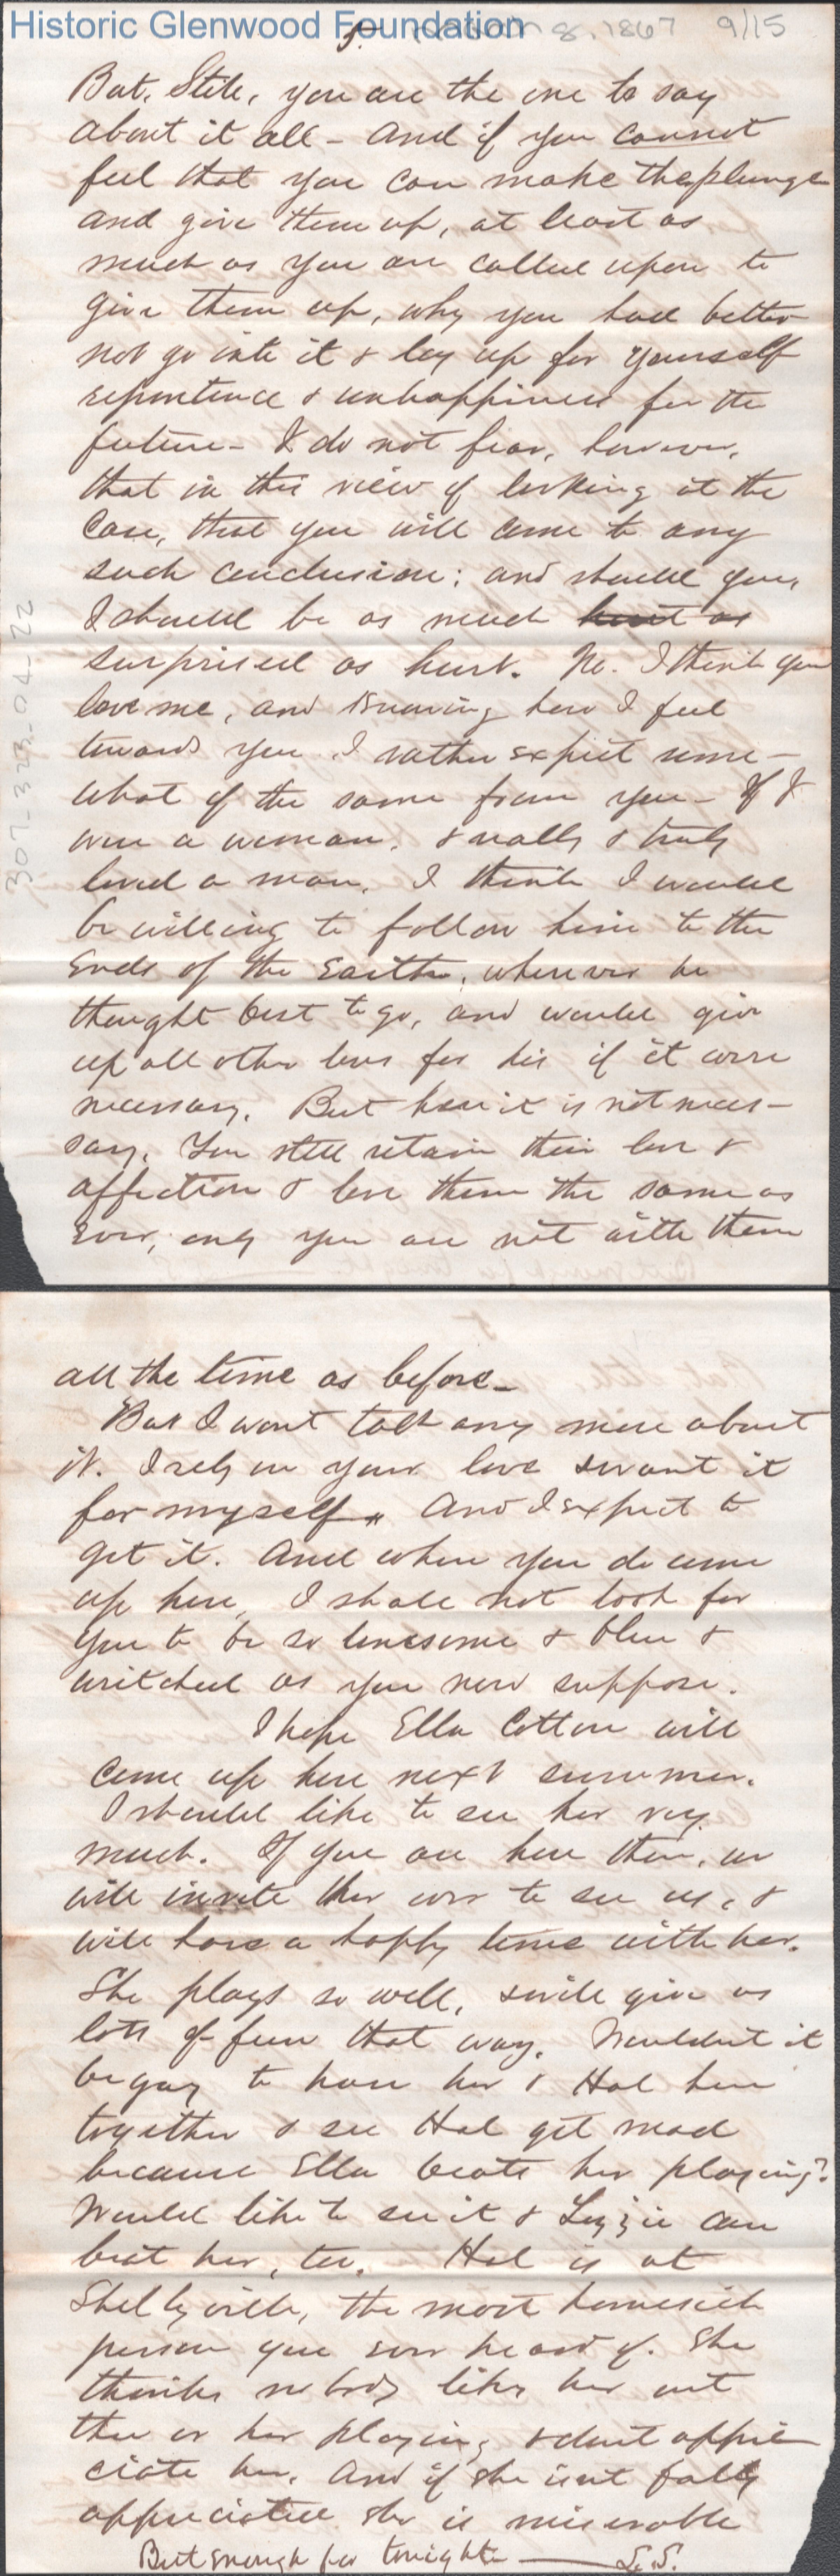 Historic Glenwood Foundation
5. March 8, 1867 9/15
But, Stile, you are the one to say
about it all - And if you cannot
feel that you can make the plunge
and give them up, at least as
much as you are called upon to
give them up, why you had better
not go into it & lay up for yourself
repentence & unhappiness for the
future - I do not fear, however,
that in this view of looking at the
Case, that you will come to any
such conclusion; and should you,
I should be as much hurt as
surprised as hurt. No. I think you
love me, and knowing how I feel
towards you I rather expect some-
what of the same from you - If I
were a woman, & really & truly
loved a man, I think I would
be willing to follow him to the
Ends of the Earth, wherever he
thought best to go, and would give
up all other love for his if it were
necessary. But here it is not neces-
sary. You still retain their love &
affection & love them the same as
Ever, only you are not with them
307-323-04-22
all the time as before -
But I wont talk any more about
it. I rely on your love & want it
for myself. And I expect to
get it. And when you do come
up here, I shall not look for
you to be so lonesome & blue &
wretched as you now suppose.
I hope Ella Cotton will
come up here next summer.
I should like to see her very
much. If you are here then, we
will invite her over to see us, &
will have a happy time with her.
She plays so well, & will give us
lots of fun that way. Wouldnt it
be gay to have her & Hal here
together & see Hal get mad
because Ella beats her playing?
Would like to see it & Lizzie can
beat her, too. - Hal is at
Shelbyville, the most homesick
person you ever heard of. She
thinks nobody likes her out
there or her playing & dont appre
ciate her. And if she isnt fully
appreciated she is miserable
But enough for tonight - L. S.